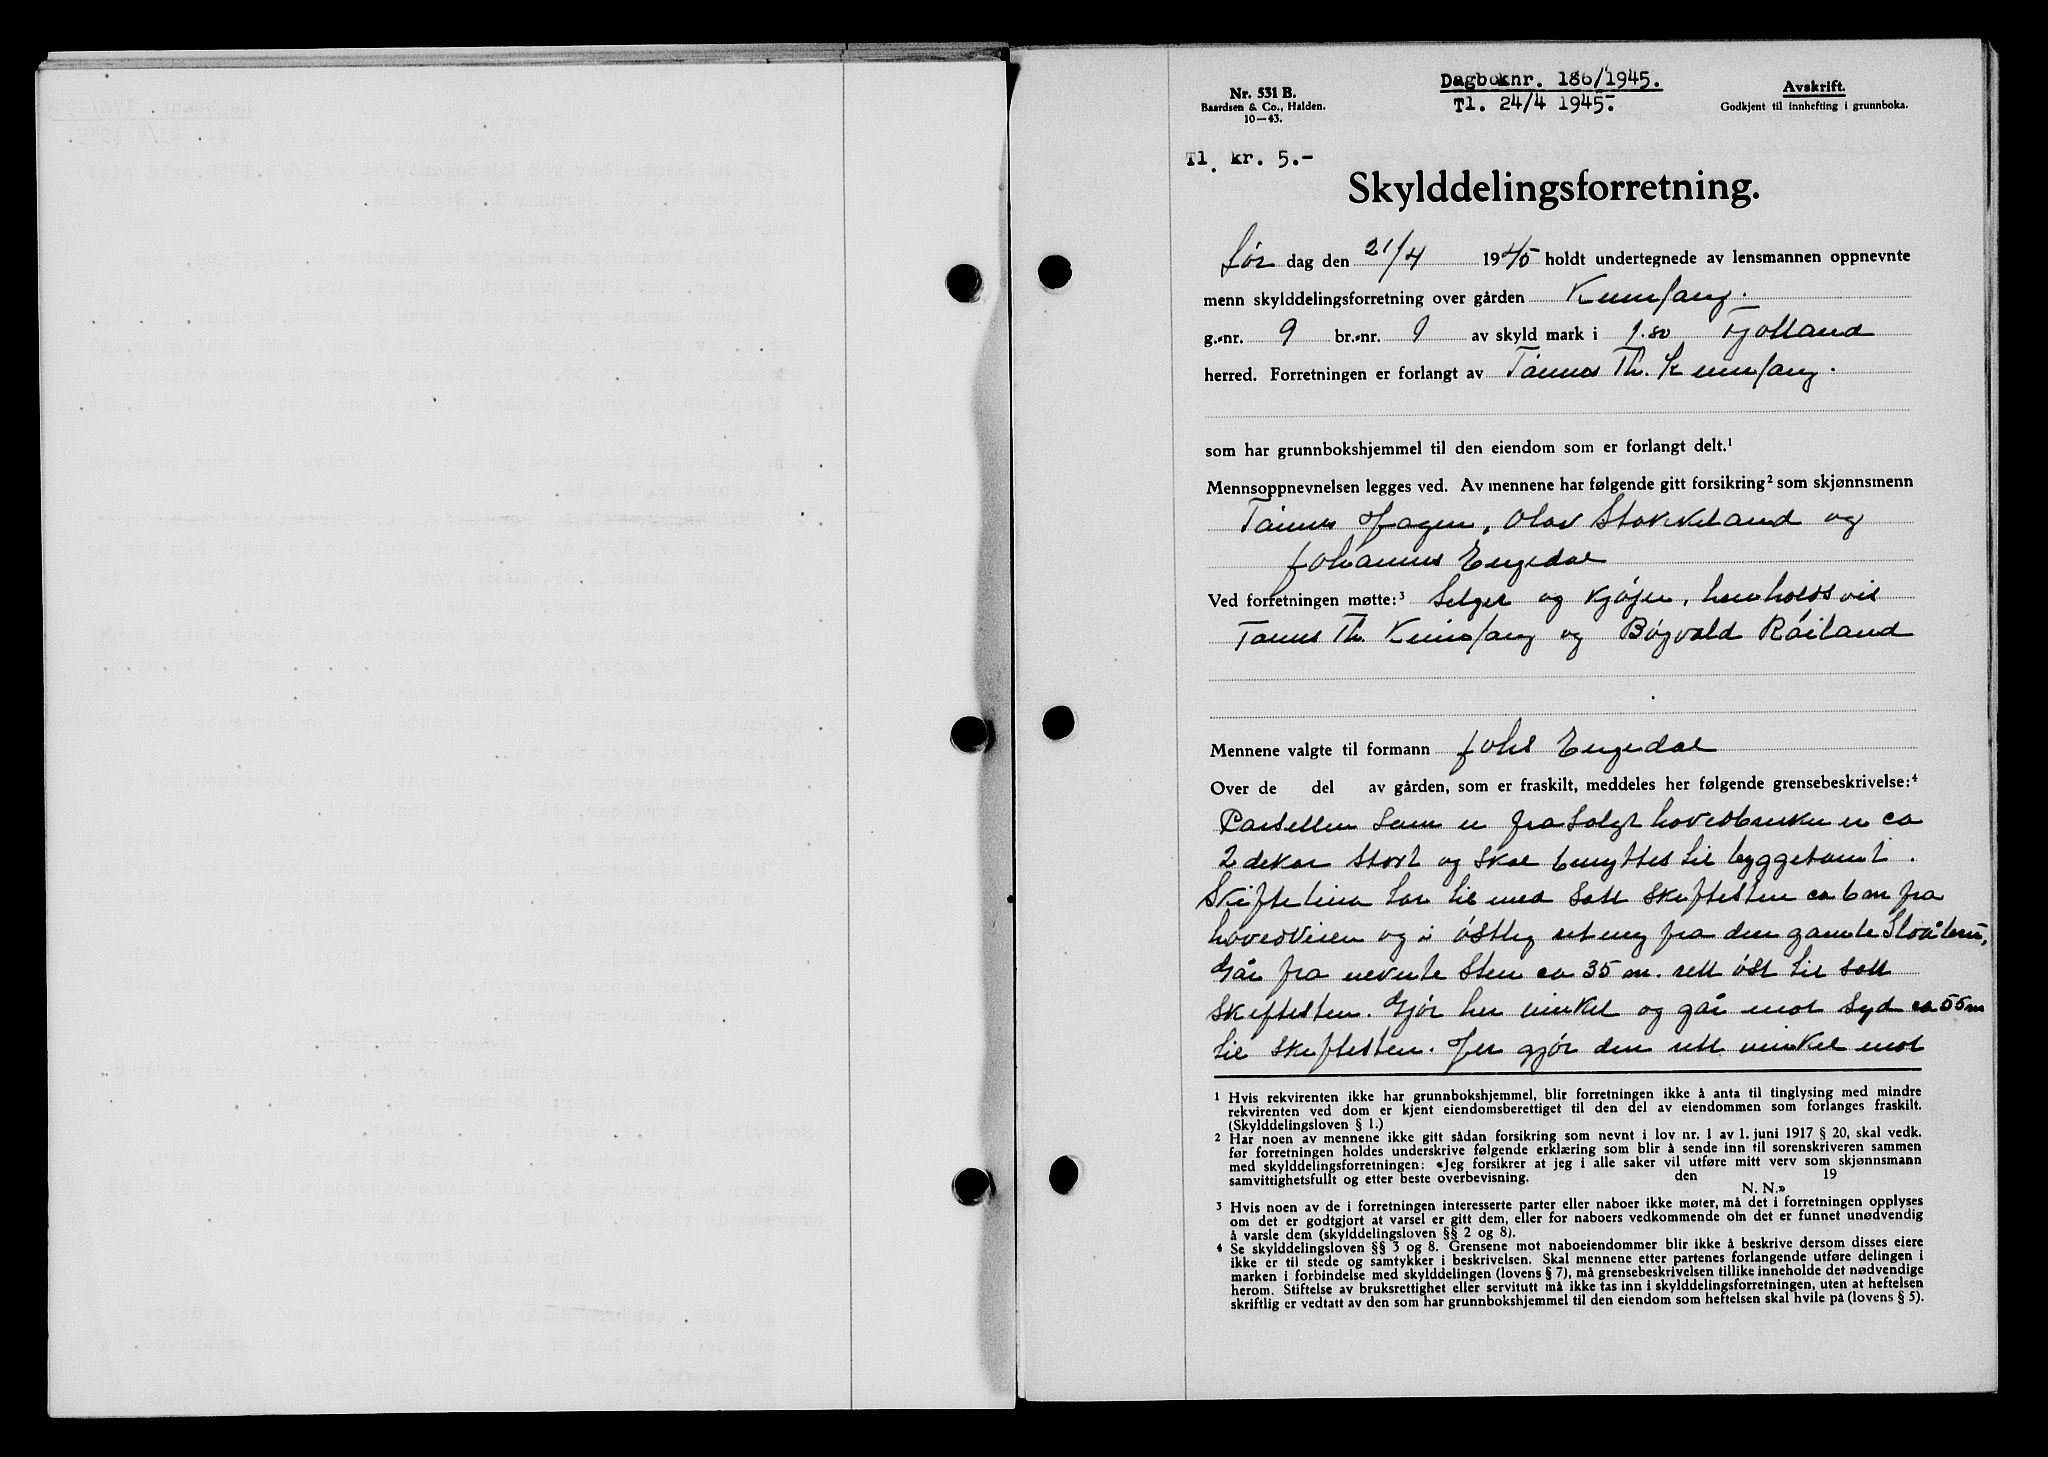 Nr. 531 B.
Baardsen & Co., Halden.
10—43.
Dagboknr. 186/1945.
Tl. 24/4 1945.
Avskrift.
Godkjent til innhefting i grunnboka.
Tl. kr. 5.-
Skylddelingsforretning.
Lør dag den 21/4 1945 holdt undertegnede av lensmannen oppnevnte
menn skylddelingsforretning over gården
g.-nr. 9 br.-nr. 1 av skyld mark i 1.80 Fjotland
herred. Forretningen er forlangt av Tønnes Th.
som har grunnbokshjemmel til den eiendom som er forlangt delt.¹
Mennsoppnevnelsen legges ved. Av mennene har følgende gitt forsikring² som skjønnsmenn
Tønnes Hagen, Olav Stokkeland og
Johannes Engedal
Ved forretningen møtte:³ Selger og kjøper, henholdsvis
Tønnes Th. og Røiland
Mennene valgte til formann Johs Engedal
Over de del av gården, som er fraskilt, meddeles her følgende grensebeskrivelse:⁴
Parsellen som er fra Solgt hovedbruket er ca
2 dekar stort og skal benyttes til byggetomt.
Skiftelina tar til med satt skiftesten ca 6 m fra
hovedveien og i østlig retning fra den gamle
Går fra nevnte sten ca 35 m. rett øst til satt
skiftesten. Gjør her vinkel og går mot syd ca 55 m
til skiftesten. Her gjør den rett vinkel mot
¹ Hvis rekvirenten ikke har grunnbokshjemmel, blir forretningen ikke å anta til tinglysing med mindre
rekvirenten ved dom er kjent eiendomsberettiget til den del av eiendommen som forlanges fraskilt.
(Skylddelingsloven § 1.)
² Har noen av mennene ikke gitt sådan forsikring som nevnt i lov nr. 1 av 1. juni 1917 § 20, skal vedk.
før forretningen holdes underskrive følgende erklæring som blir å sende inn til sorenskriveren sammen
med skylddelingsforretningen: «Jeg forsikrer at jeg i alle saker vil utføre mitt verv som skjønnsmann
samvittighetsfullt og etter beste overbevisning. den 19
N. N.»
³ Hvis noen av de i forretningen interesserte parter eller naboer ikke møter, må det i forretningen opplyses
om det er godtgjort at varsel er gitt dem, eller for naboers vedkommende om det er funnet unødvendig
å varsle dem (skylddelingsloven §§ 2 og 8).
⁴ Se skylddelingsloven §§ 3 og 8. Grensene mot naboeiendommer blir ikke å beskrive dersom disses eiere
ikke er til stede og samtykker i beskrivelsen. Skal mennene etter partenes forlangende utføre delingen i
marken i forbindelse med skylddelingen (lovens § 7), må grensebeskrivelsen tillike inneholde det nødvendige
herom. Stiftelse av bruksrettighet eller servitutt må ikke tas inn i skylddelingsforretningen, uten at heftelsen
skriftlig er vedtatt av den som har grunnbokshjemmel til den eiendom som heftelsen skal hvile på (lovens § 5).